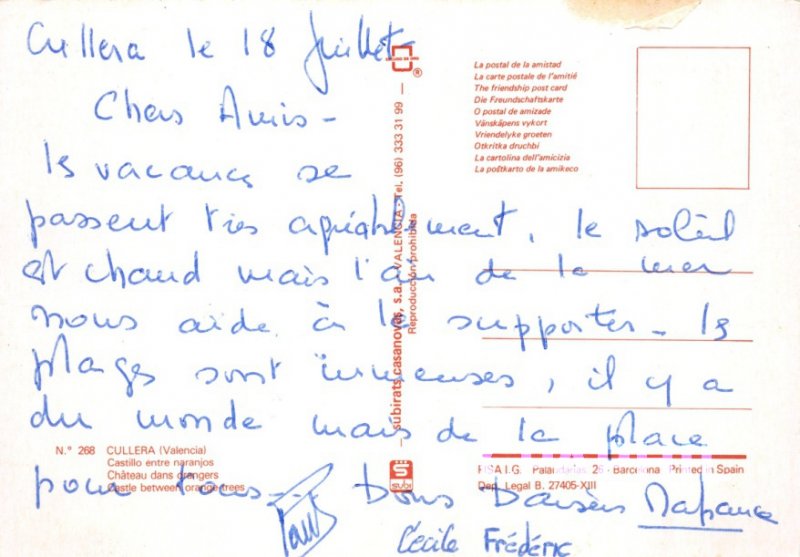 Cullera le 18 Juillet
Chers Amis -
les vacances se
passent très agréablement, le soleil
est chaud mais l'air de la mer
nous aide à le supporter - les
plages sont immenses, il y a
du monde mais de la place
pour tous - Bons Baisers
Cécile Frédéric
La postal de la amistad
La carte postale de l'amitié
The friendship post card
Die Freundschaftskarte
O postal de amizade
Vänskåpens vykort
Vriendelyke groeten
Otkritka druchbi
La cartolina dell'amicizia
La poŝtkarto de la amikeco
subirats casanovas, s.a. - VALENCIA - Tel. (96) 333 31 99
Reproducción prohibida
SUBI
N.º 268 CULLERA (Valencia)
Castillo entre naranjos
Château dans orangers
Castle between orange-trees
FISA I.G. Palaudarias, 26 - Barcelona Printed in Spain
Dep. Legal B. 27405-XIII